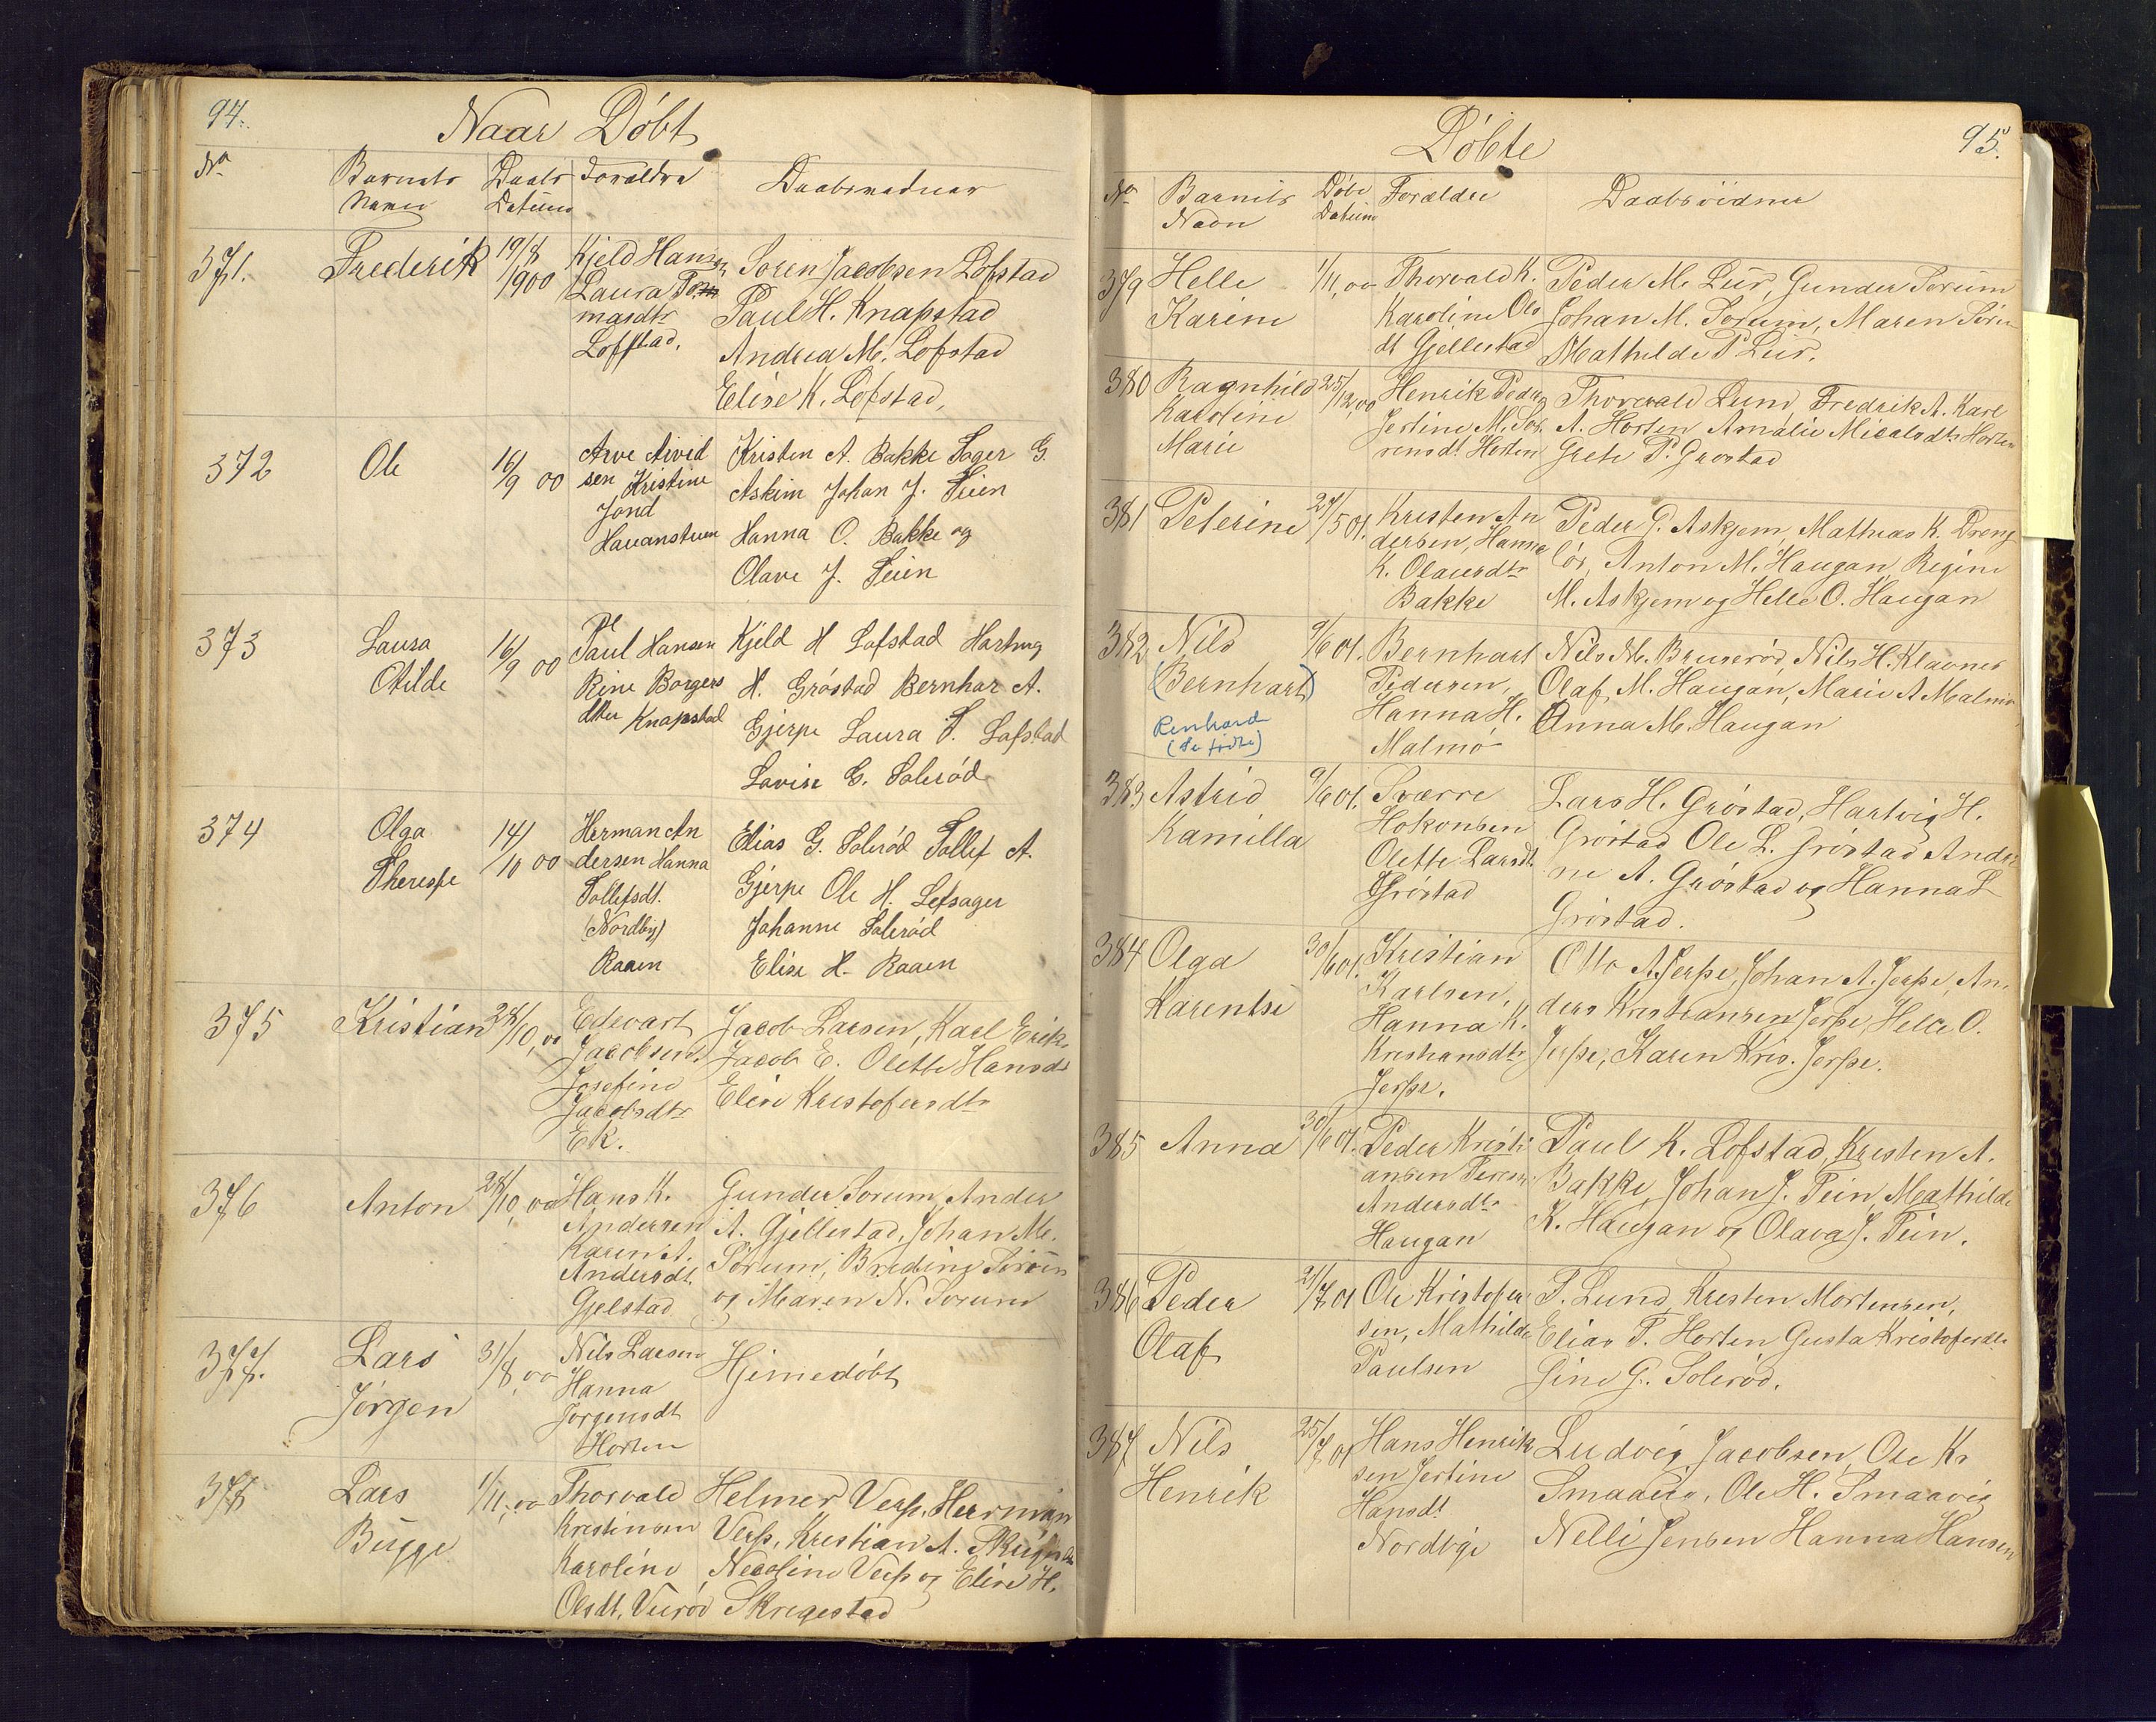 94.
Naar Døbt
No
Barnets Navn
Daabs Datum
Foraldre
371.
Frederik
19/8 1900
Kjeld Hansen
Laura Tom
masdtr
Lofstad.
Soren Jacobsen Lofstad
Paul H. Knapstad
Andrea M. Lofstad
Elise K. Lofstad,
372
Ole
16/9 00
Arve Arvid
sen Kristine
Jond
Kristen A. Bakke G.
Askim Johan J.
Hanna O. Bakke og
Olave J.
373
Laura
Otilde
16/9 00
Paul Hansen
Rine Borgers
dtter Knapstad
Kjeld H Lofstad
H. Gróstad Bernhar A.
Gjerpe Laura T. Lofstad
Lovise G. Solerød
374
Olga
Therese
14/10 00
Herman An
dersen Hanna
Tollefsdt.
(Nordby)
Raaen
Elias G. Solerød Tollef A.
Gjerpe Ole H.
Johanne Solerød
Elise H. Raaen
375
Kristian
28/10, 00
Edevart
Jacobsen,
Josefine
Jacobsdtr
Ek.
Jacob Larsen, Karl Erik.
Jacob E. Olette Hansdt
Elise Kristofersdtr
376
Anton
28/10, 00
Hans K.
Andersen
Karen A.
Andersdt.
Gjelstad
Gunder Sorum, Ander
A. Gjellestad, Johan M.
Sorum,
og Maren N. Sorum
377.
Lars
Jørgen
31/8, 00
Nils Larsen
Hanna
Jorgensdt
Horten
Hjemedøbt
378
Lars
Bugge
1/11, 00
Thorvald
Kristinsen
Karoline
Olsdt.
Helmer Verp, Herman
Verp, Kristian A.
Nicoline Verp og Elise H.
95.
Døbte
No
Barnets
Navn
Døbe
Datum
Forældre
Daabsvidner
379
Helle
Karine
1/11, 00
Thorvald K.
Karoline Ols
dt Gjellestad
Peder M. Lur, Gunder Sorum
Johan M. Sorum, Maren
Mathilde P Lur.
380
Ragnhild
Karoline
Marie
25/12, 00
Henrik
Jestine M.
rensdt. Horten
Thorvald Lund, Fredrik A. Karl
A. Horten Amalie Horten
Grete P. Grøstad
381
Peterine
27/5 01.
Kristen An
dersen,
K. Olausdtr
Bakke
Peder P. Askjem, Mathias K.
Anton M. Haugan, Regine
M. Askjem og Helle O. Haugan
382
Nils
(Bernhart)
Renhard
(Se fødte)
9/6 01.
Bernhart
Pedersen,
Hanna H.
Malmø
Nils M. Bruserød, Nils H. Klavnes
Olaf M. Haugan, Marie A Malmø,
Anna M. Haugan
383
Astrid
Kamilla
9/6 01.
Sværre
Hokonsen
Olette Larsdt.
Grøstad
Lars H. Grøstad, Hartvig H.
Grøstad Ole L. Grøstad Andri
ne A. Grøstad og Hanna L
Grøstad.
384
Olga
Karentse
30/6 01.
Kristian
Karlsen,
Hanna K.
Kristiansdtr
Jerpe.
Otto A. Jerpe, Johan A. Jerpe, An,
ders Kristiansen Jerpe, Helle O.
Jerpe, Karen Kris. Jerpe.
385
Anna
30/6 01.
Peder Kristi
ansen
Andersdtr
Haugan
Paul K. Lofstad, Kristen A.
Bakke, Johan J. Mathilde
K. Haugan og Olava J.
386
Peder
Olaf
21/7 01
Ole Kristofer
sen, Mathilde
Paulsen
T. Lund, Kristen Mortensen,
Elias T. Horten Gusta Kristofersdtr
Gine G. Solerød.
387
Nils
Henrik
25/7 01
Hans Henrik
sen Jestine
Hansdt
Nordvigi
Ludvig Jacobsen, Ole Kr
Ole H. Smaavig
Nelli Jensen Hanna Hansen